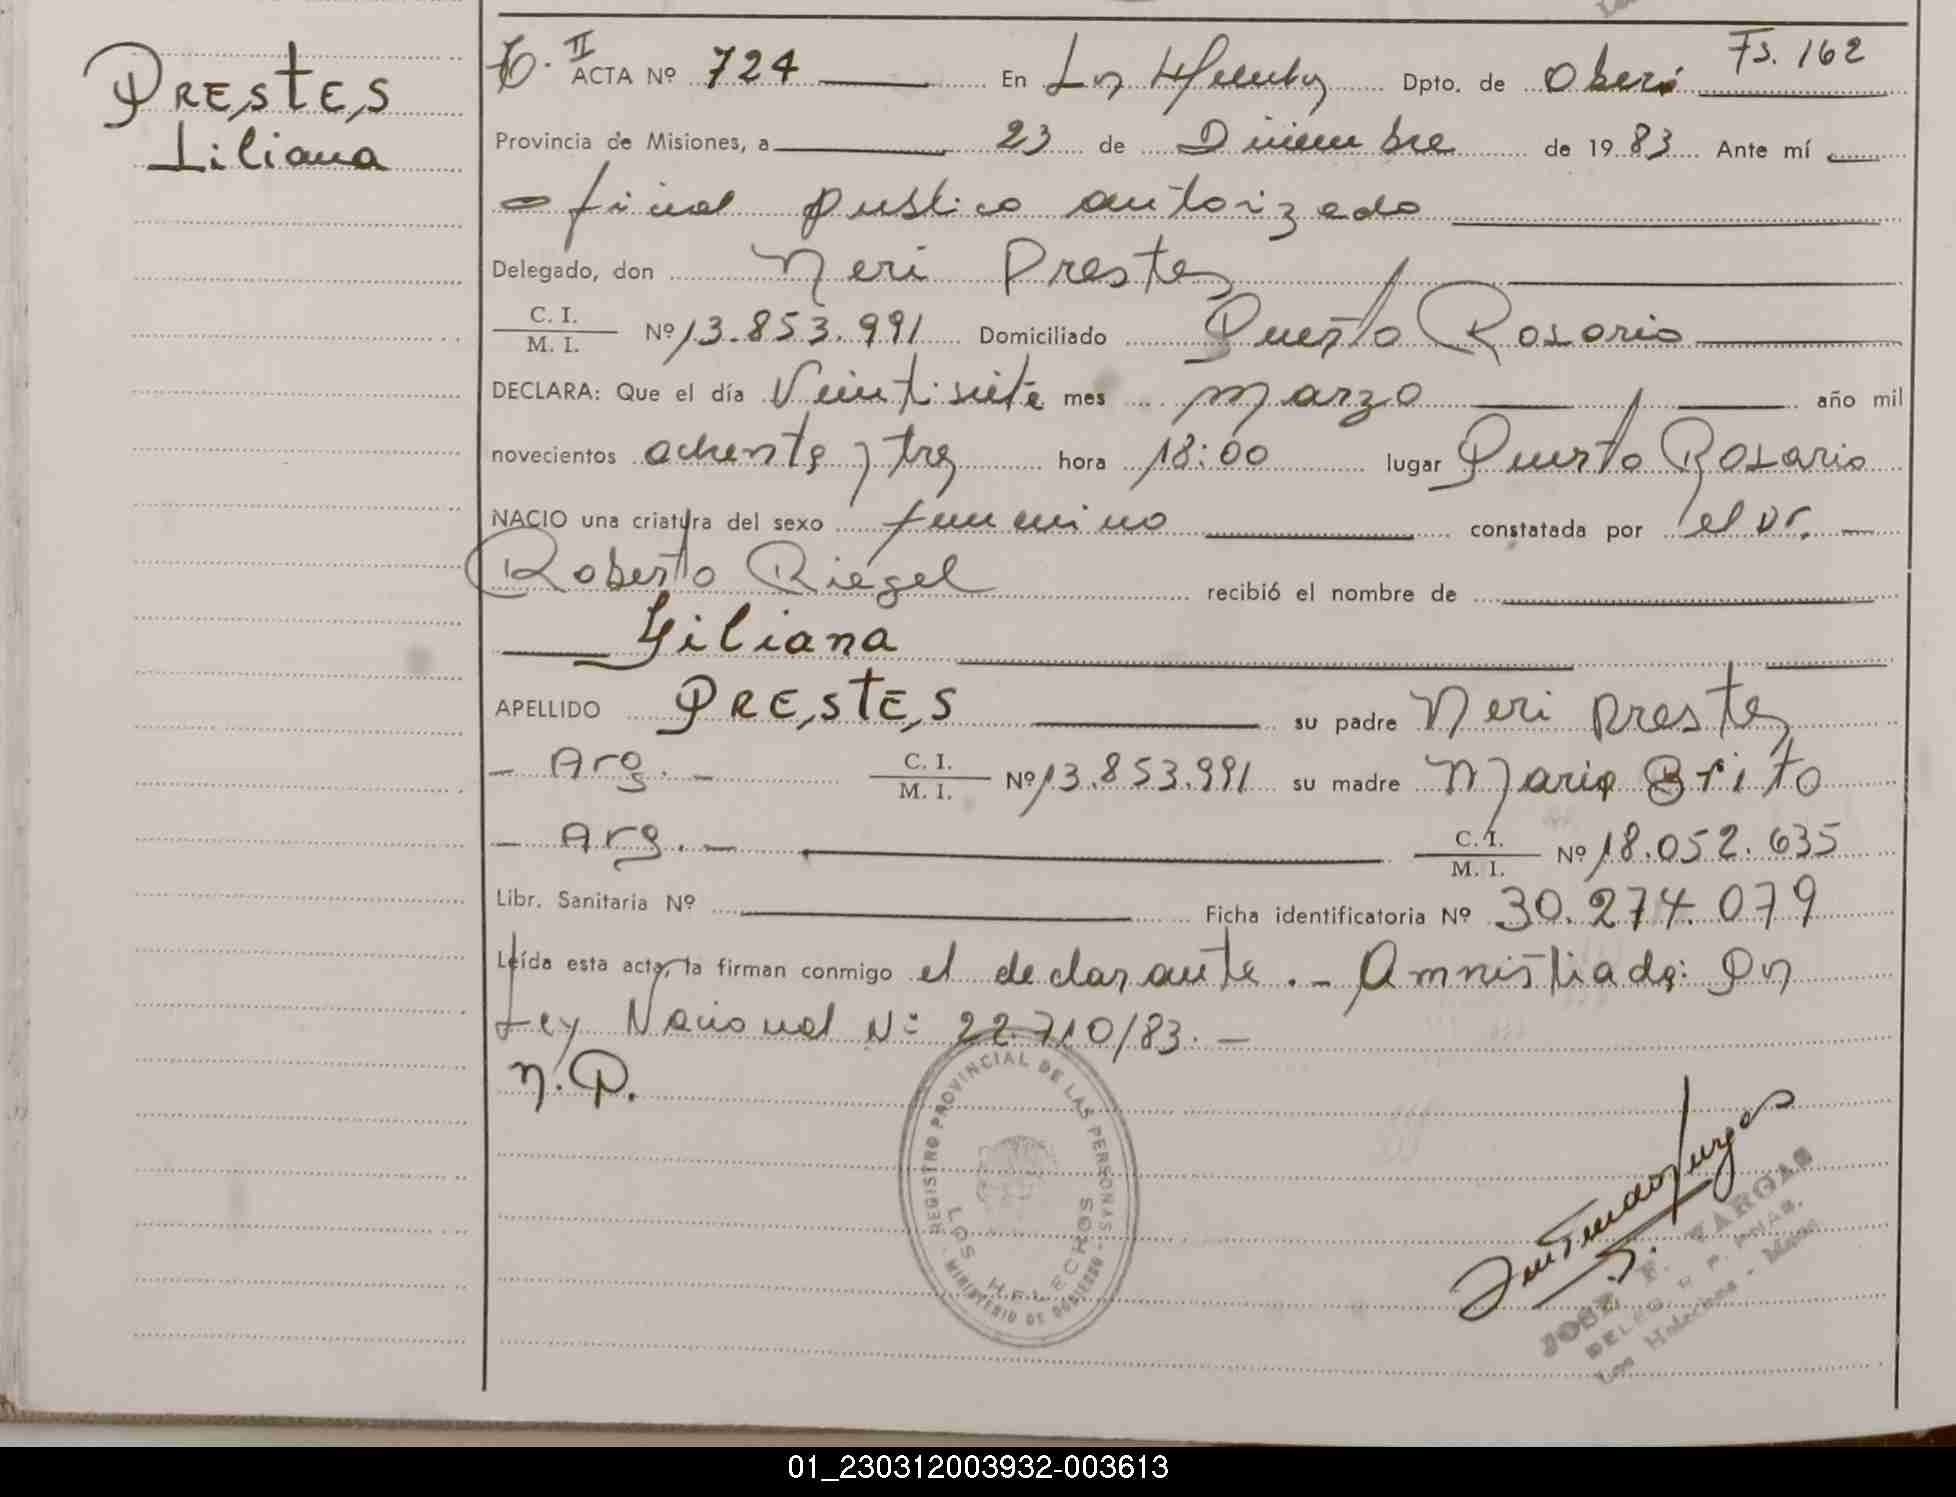 PRESTES
Liliana
To. II ACTA Nº 724 En Los Helechos Dpto. de Oberá Fs. 162
Provincia de Misiones, a 23 de Diciembre de 1983 Ante mí
oficial publico autorizado
Delegado, don Neri Prestes
C. I.
M. I. Nº 13.853.991 Domiciliado Puerto Rosario
DECLARA: Que el día Veintisiete mes marzo año mil
novecientos ochenta y tres hora 18:00 lugar Puerto Rosario
NACIO una criatura del sexo femenino constatada por el Dr. —
Roberto Riegel recibió el nombre de
Liliana
APELLIDO PRESTES su padre Neri Prestes
— Arg. — C. I.
M. I. Nº 13.853.991 su madre Maria Brito
— Arg. — C. I.
M. I. Nº 18.052.635
Libr. Sanitaria Nº Ficha identificatoria Nº 30.274.079
Leída esta acta, la firman conmigo el declarante. — Amnistiada: Por
Ley Nacional Nº 22.710/83. —
N.P.
REGISTRO PROVINCIAL DE LAS PERSONAS
LOS HELECHOS
MINISTERIO DE GOBIERNO
JOSE F. VARGAS
DELEG. R. P. PNAS.
Los Helechos - Mnes
01_230312003932-003613